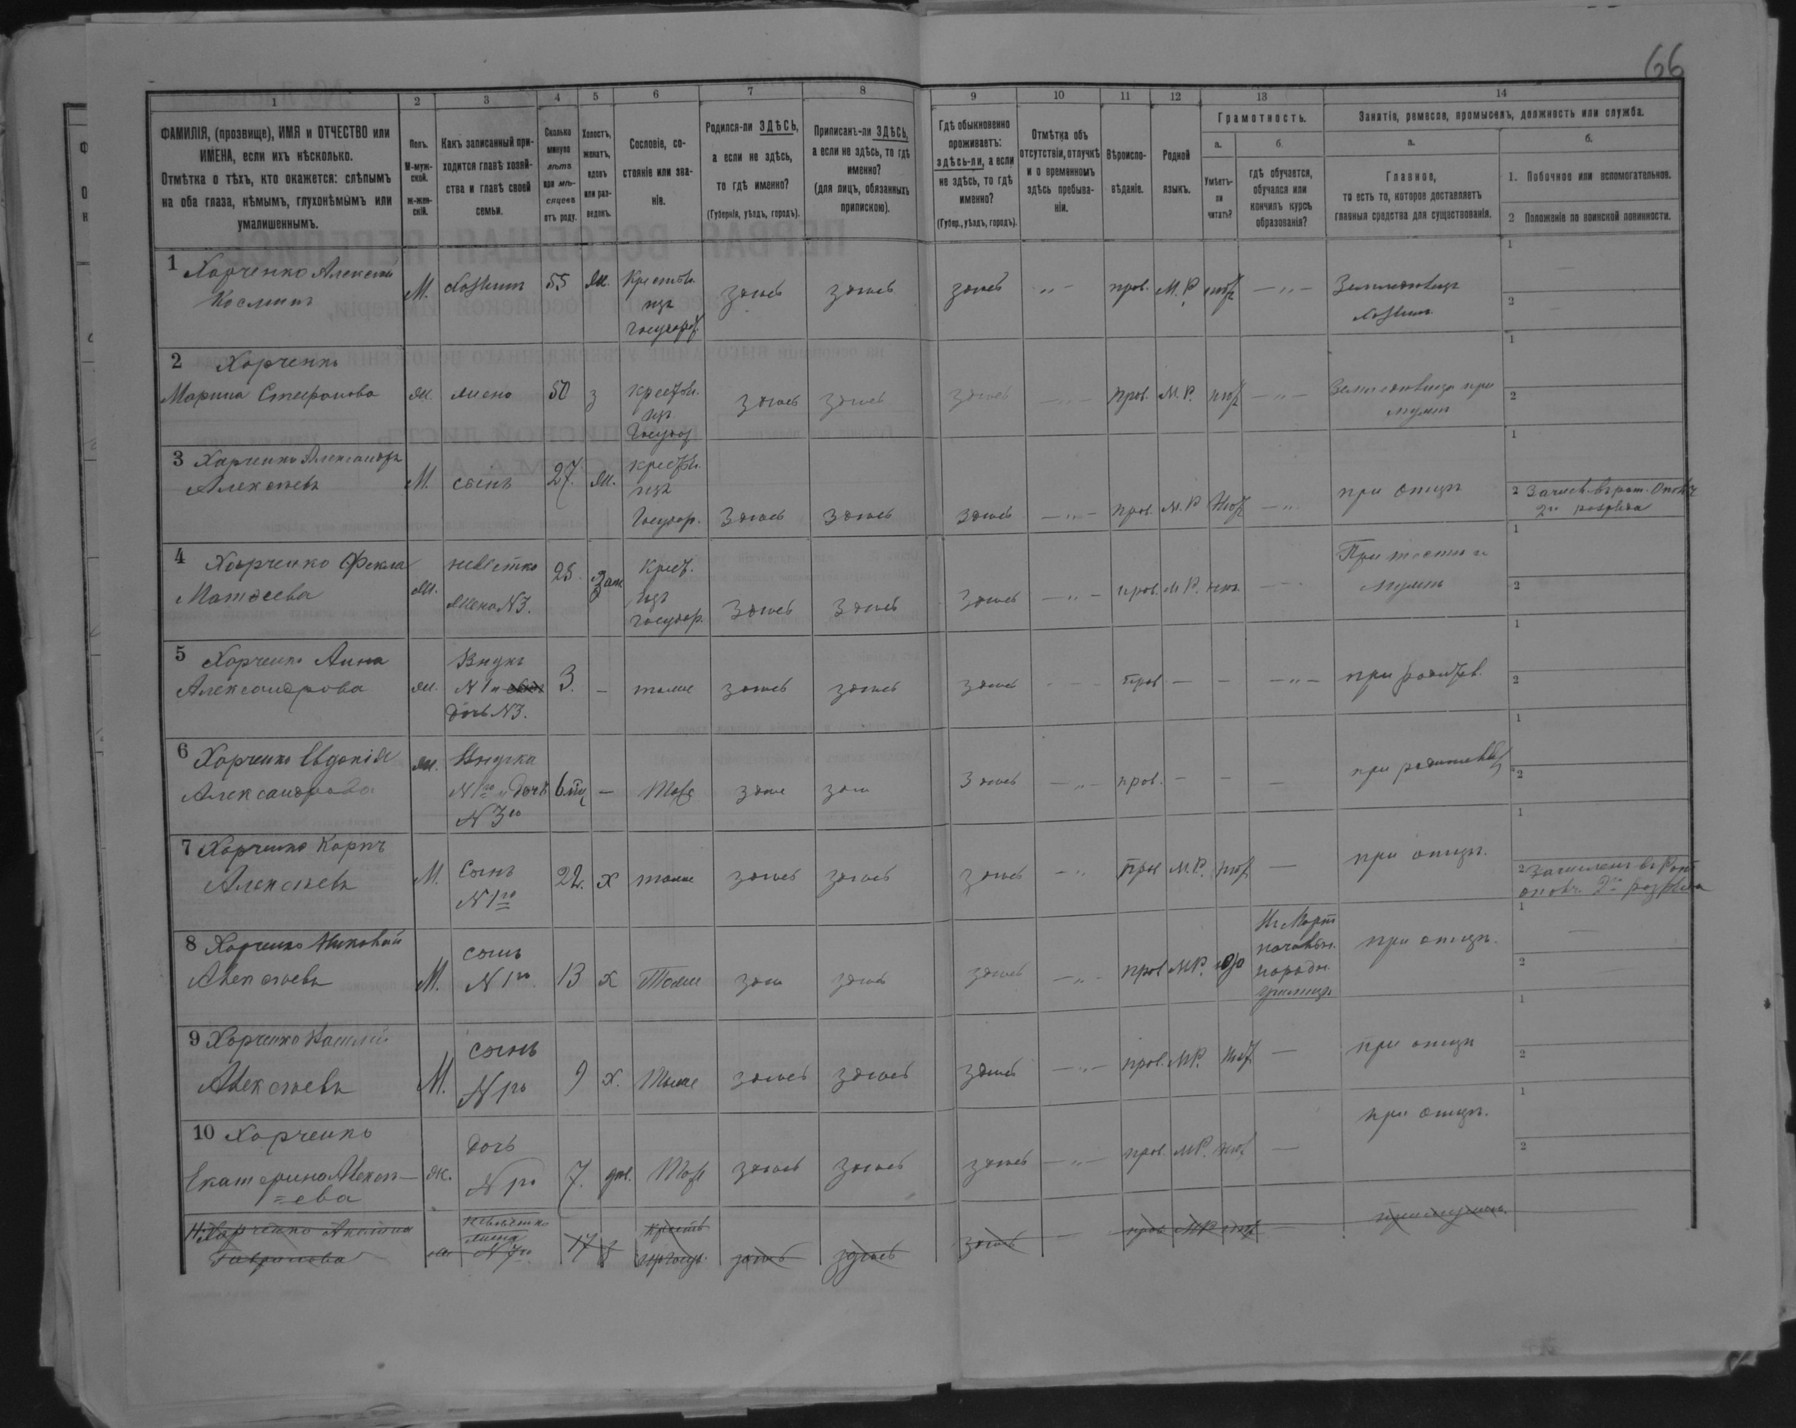 66
1 2 3 4 5 6 7 8 9 10 11 12 13 14
ФАМИЛІЯ, (прозвище), ИМЯ и ОТЧЕСТВО или
ИМЕНА, если ихъ нѣсколько.
Отмѣтка о тѣхъ, кто окажется: слѣпымъ
на оба глаза, нѣмымъ, глухонѣмымъ или
умалишеннымъ.
Полъ.
М-муж-
ской.
ж-жен-
скій.
Какъ записанный при-
ходится главѣ хозяй-
ства и главѣ своей
семьи.
Сколько
минуло
лѣтъ
или мѣ-
сяцевъ
отъ роду.
Холостъ,
женатъ,
вдовъ
или раз-
веденъ.
Сословіе, со-
стояніе или зва-
ніе.
Родился-ли ЗДѢСЬ,
а если не здѣсь,
то гдѣ именно?
(Губернія, уѣздъ, городъ).
Приписанъ-ли ЗДѢСЬ,
а если не здѣсь, то гдѣ
именно?
(для лицъ, обязанныхъ
припискою).
Гдѣ обыкновенно
проживаетъ:
здѣсь-ли, а если
не здѣсь, то гдѣ
именно?
(Губер., уѣздъ, городъ).
Отмѣтка объ
отсутствіи, отлучкѣ
и о временномъ
здѣсь пребыва-
ніи.
Вѣроиспо-
вѣданіе.
Родной
языкъ.
Грамотность.
а.
Умѣетъ-
ли
читать?
б.
гдѣ обучается,
обучался или
кончилъ курсъ
образованія?
Занятіе, ремесло, промыселъ, должность или служба.
а.
Главное,
то есть то, которое доставляетъ
главныя средства для существованія.
б.
1. Побочное или вспомогательное.
2 Положеніе по воинской повинности.
1 Харченко Алексѣй
Космичъ
М. хозяинъ 55 ж. Крестьян.
изъ
государ.
здѣсь здѣсь здѣсь — „ — прав. М.Р. нѣтъ — „ — Земледѣлецъ
хозяинъ
1
2
2 Харченко
Марина Стефанова
ж. жена 50 з Крестьян.
изъ
Государ.
здѣсь здѣсь здѣсь — „ — прав. М.Р. нѣтъ — „ — Земледѣлица при
мужѣ
1
2
3 Харченко Александръ
Алексѣевъ
М. сынъ 27. ж. крестьян.
изъ
Государ.
здѣсь здѣсь здѣсь — „ — прав. М.Р. нѣтъ — „ при отцѣ
1
2 Зачисл. въ рат. Ополч.
2го разряда
4 Харченко Фекла
Матвеева
ж. невѣстка
жена N3.
25. Зам Крест.
изъ
государ.
здѣсь здѣсь здѣсь — „ — прав. М.Р. нѣтъ При
мужѣ
1
2
5 Харченко Анна
Александрова
ж. Внука
N 1 и
дочь N3.
3. — тоже здѣсь здѣсь здѣсь прав — — — „ — при родител.
1
2
6 Харченко Евдокія
Александрова
ж. Внучка
N 1го и дочь
N 3го
6 мѣс — Тоже здѣсь здѣсь здѣсь — „ — прав. — — — при родителяхъ
1
2
7 Харченко Карпъ
Алексѣевъ
М. Сынъ
N 1го
22. х тоже здѣсь здѣсь здѣсь — „ прав М.Р. нѣтъ — при отцѣ.
1
2 Зачисленъ въ Рат
ополч. 2го разряда
8 Харченко Николай
Алексѣевъ
М. сынъ
N 1го
13 х Тоже здѣсь здѣсь здѣсь — „ — прав М.Р. да
начальн.
народн.
училищѣ
при отцѣ.
1
2
9 Харченко Василій
Алексѣевъ
М. сынъ
N 1го
9 х. Тоже здѣсь здѣсь здѣсь — „ — прав. М.Р. нѣтъ — при отцѣ
1
2
10 Харченко
Екатерина Алексѣ—
=ева
ж. дочь
N 1го
7. дѣв. Тоже здѣсь здѣсь здѣсь — „ — прав. М.Р. нѣтъ — при отцѣ.
1
2
11. Харченко
Гаврилова
ж невѣстка
жена
N 7го
17 з Крест.
изъ госуд.
здѣсь здѣсь здѣсь — прав М.Р. нѣтъ — при мужѣ.